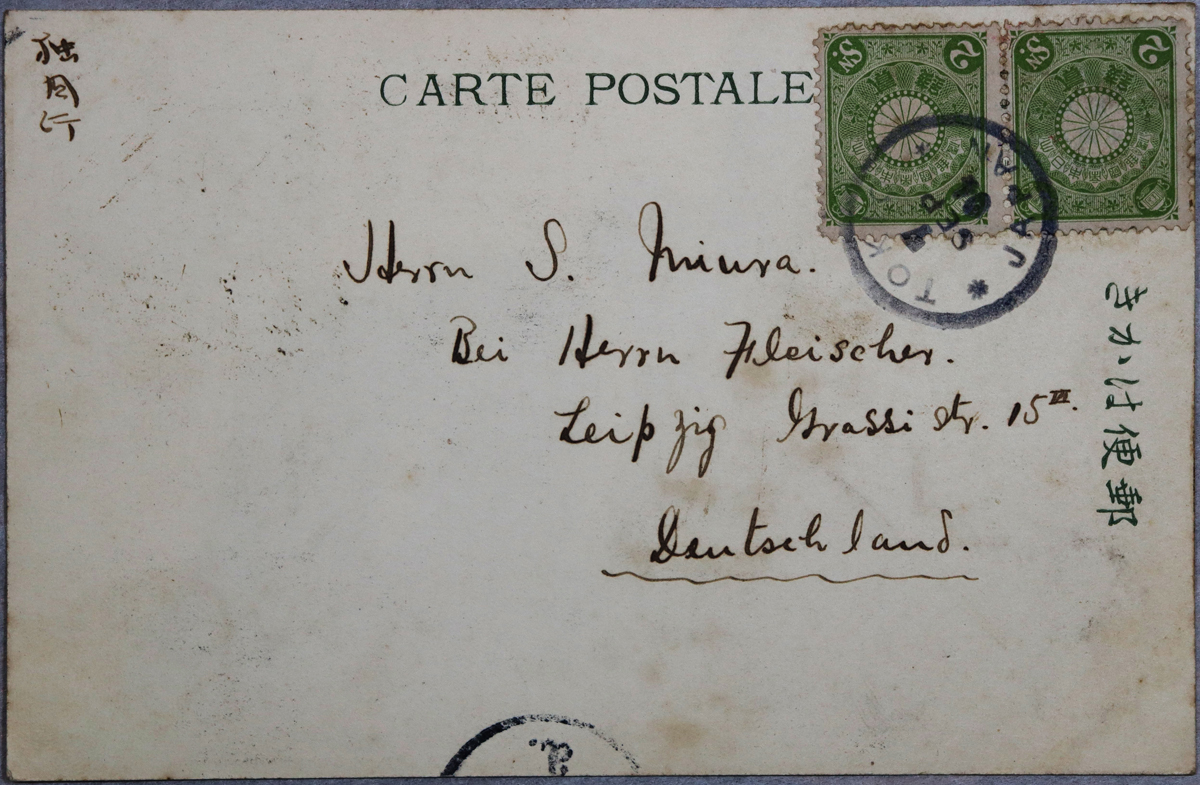 独国行
CARTE POSTALE
2 SN.
2 SN.
TOK
JAPAN
SEP
Herrn S. Miura.
Bei Herrn Fleischer.
Leipzig Grassi str. 15 III.
Deutschland.
きかは便郵